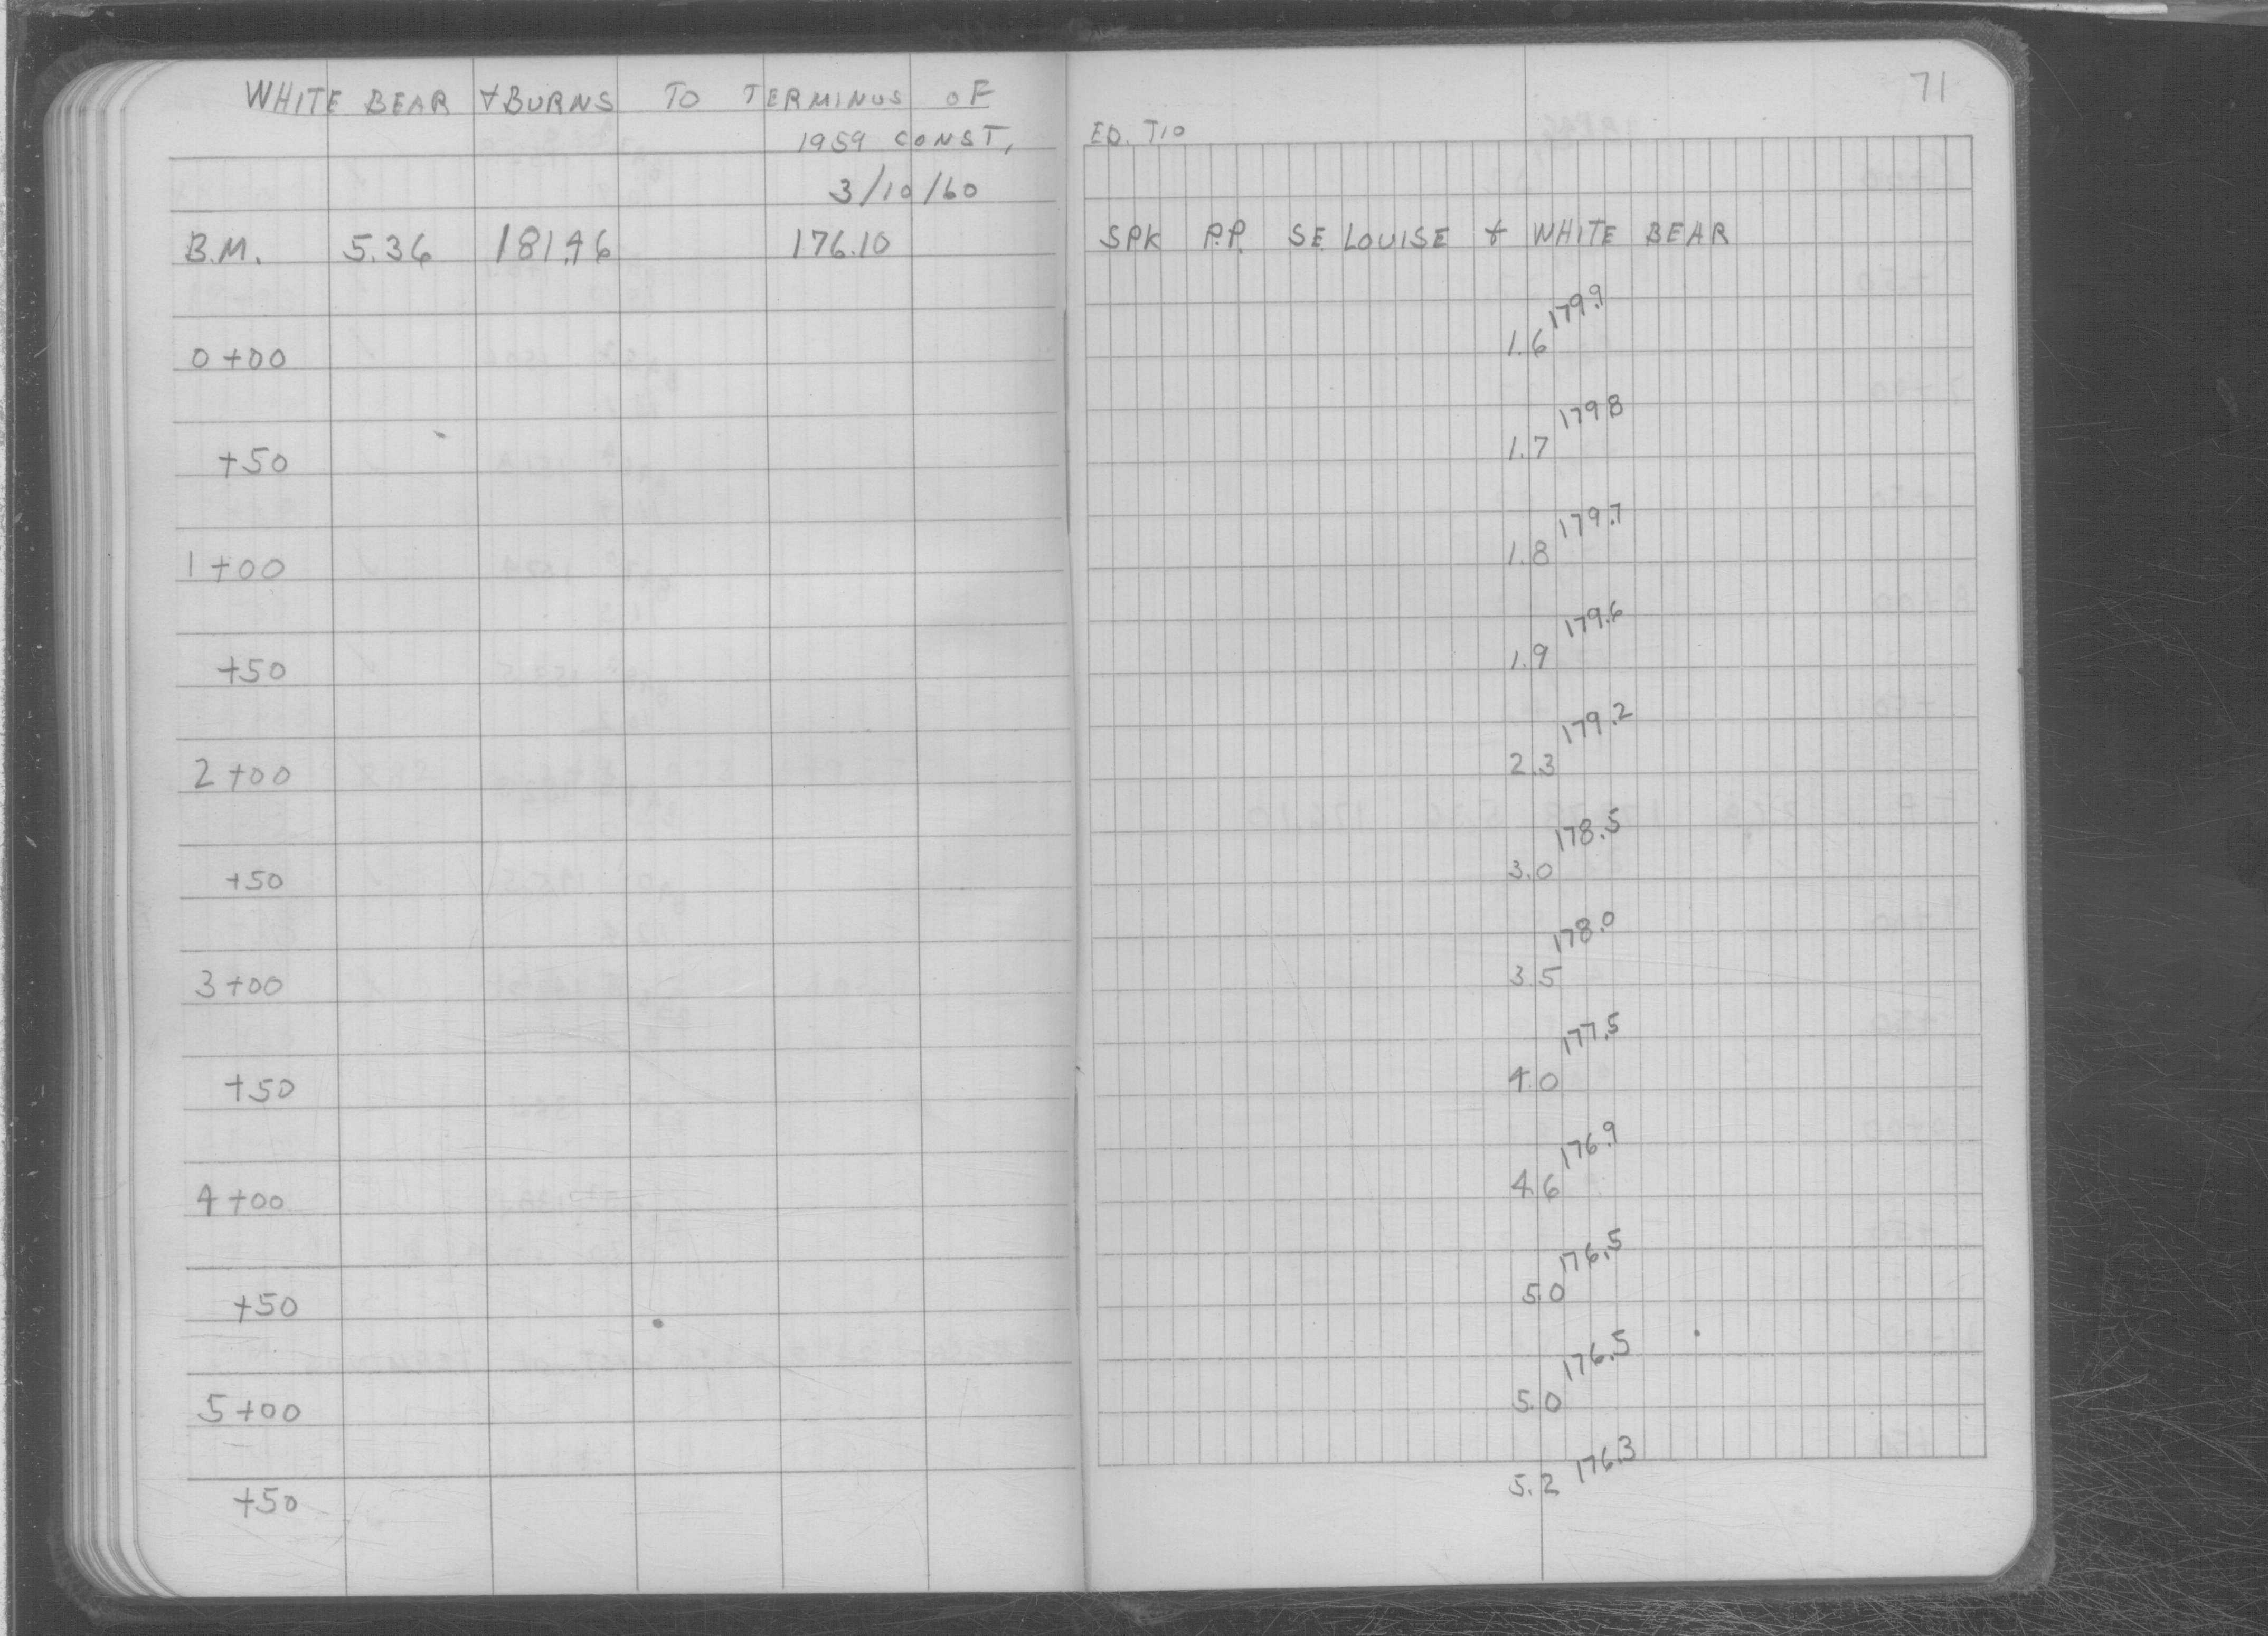 WHITE BEAR & BURNS TO TERMINUS OF
1959 CONST,
3/10/60
B.M. 5.36 181.46 176.10
0+00
+50
1+00
+50
2+00
+50
3+00
+50
4+00
+50
5+00
+50
71
ED. T10
SPK P.P. SE LOUISE & WHITE BEAR
1.6 179.9
1.7 179.8
1.8 179.7
1.9 179.6
2.3 179.2
3.0 178.5
3.5 178.0
4.0 177.5
4.6 176.9
5.0 176.5
5.0 176.5
5.2 176.3